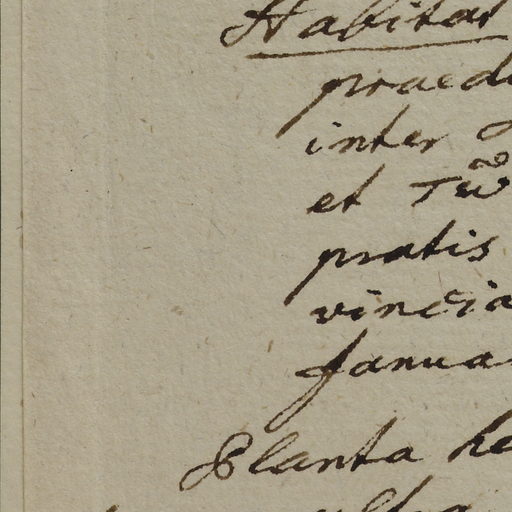 Habitat
praed
inter
et Tw
pratis
vincia
Janua
Planta he